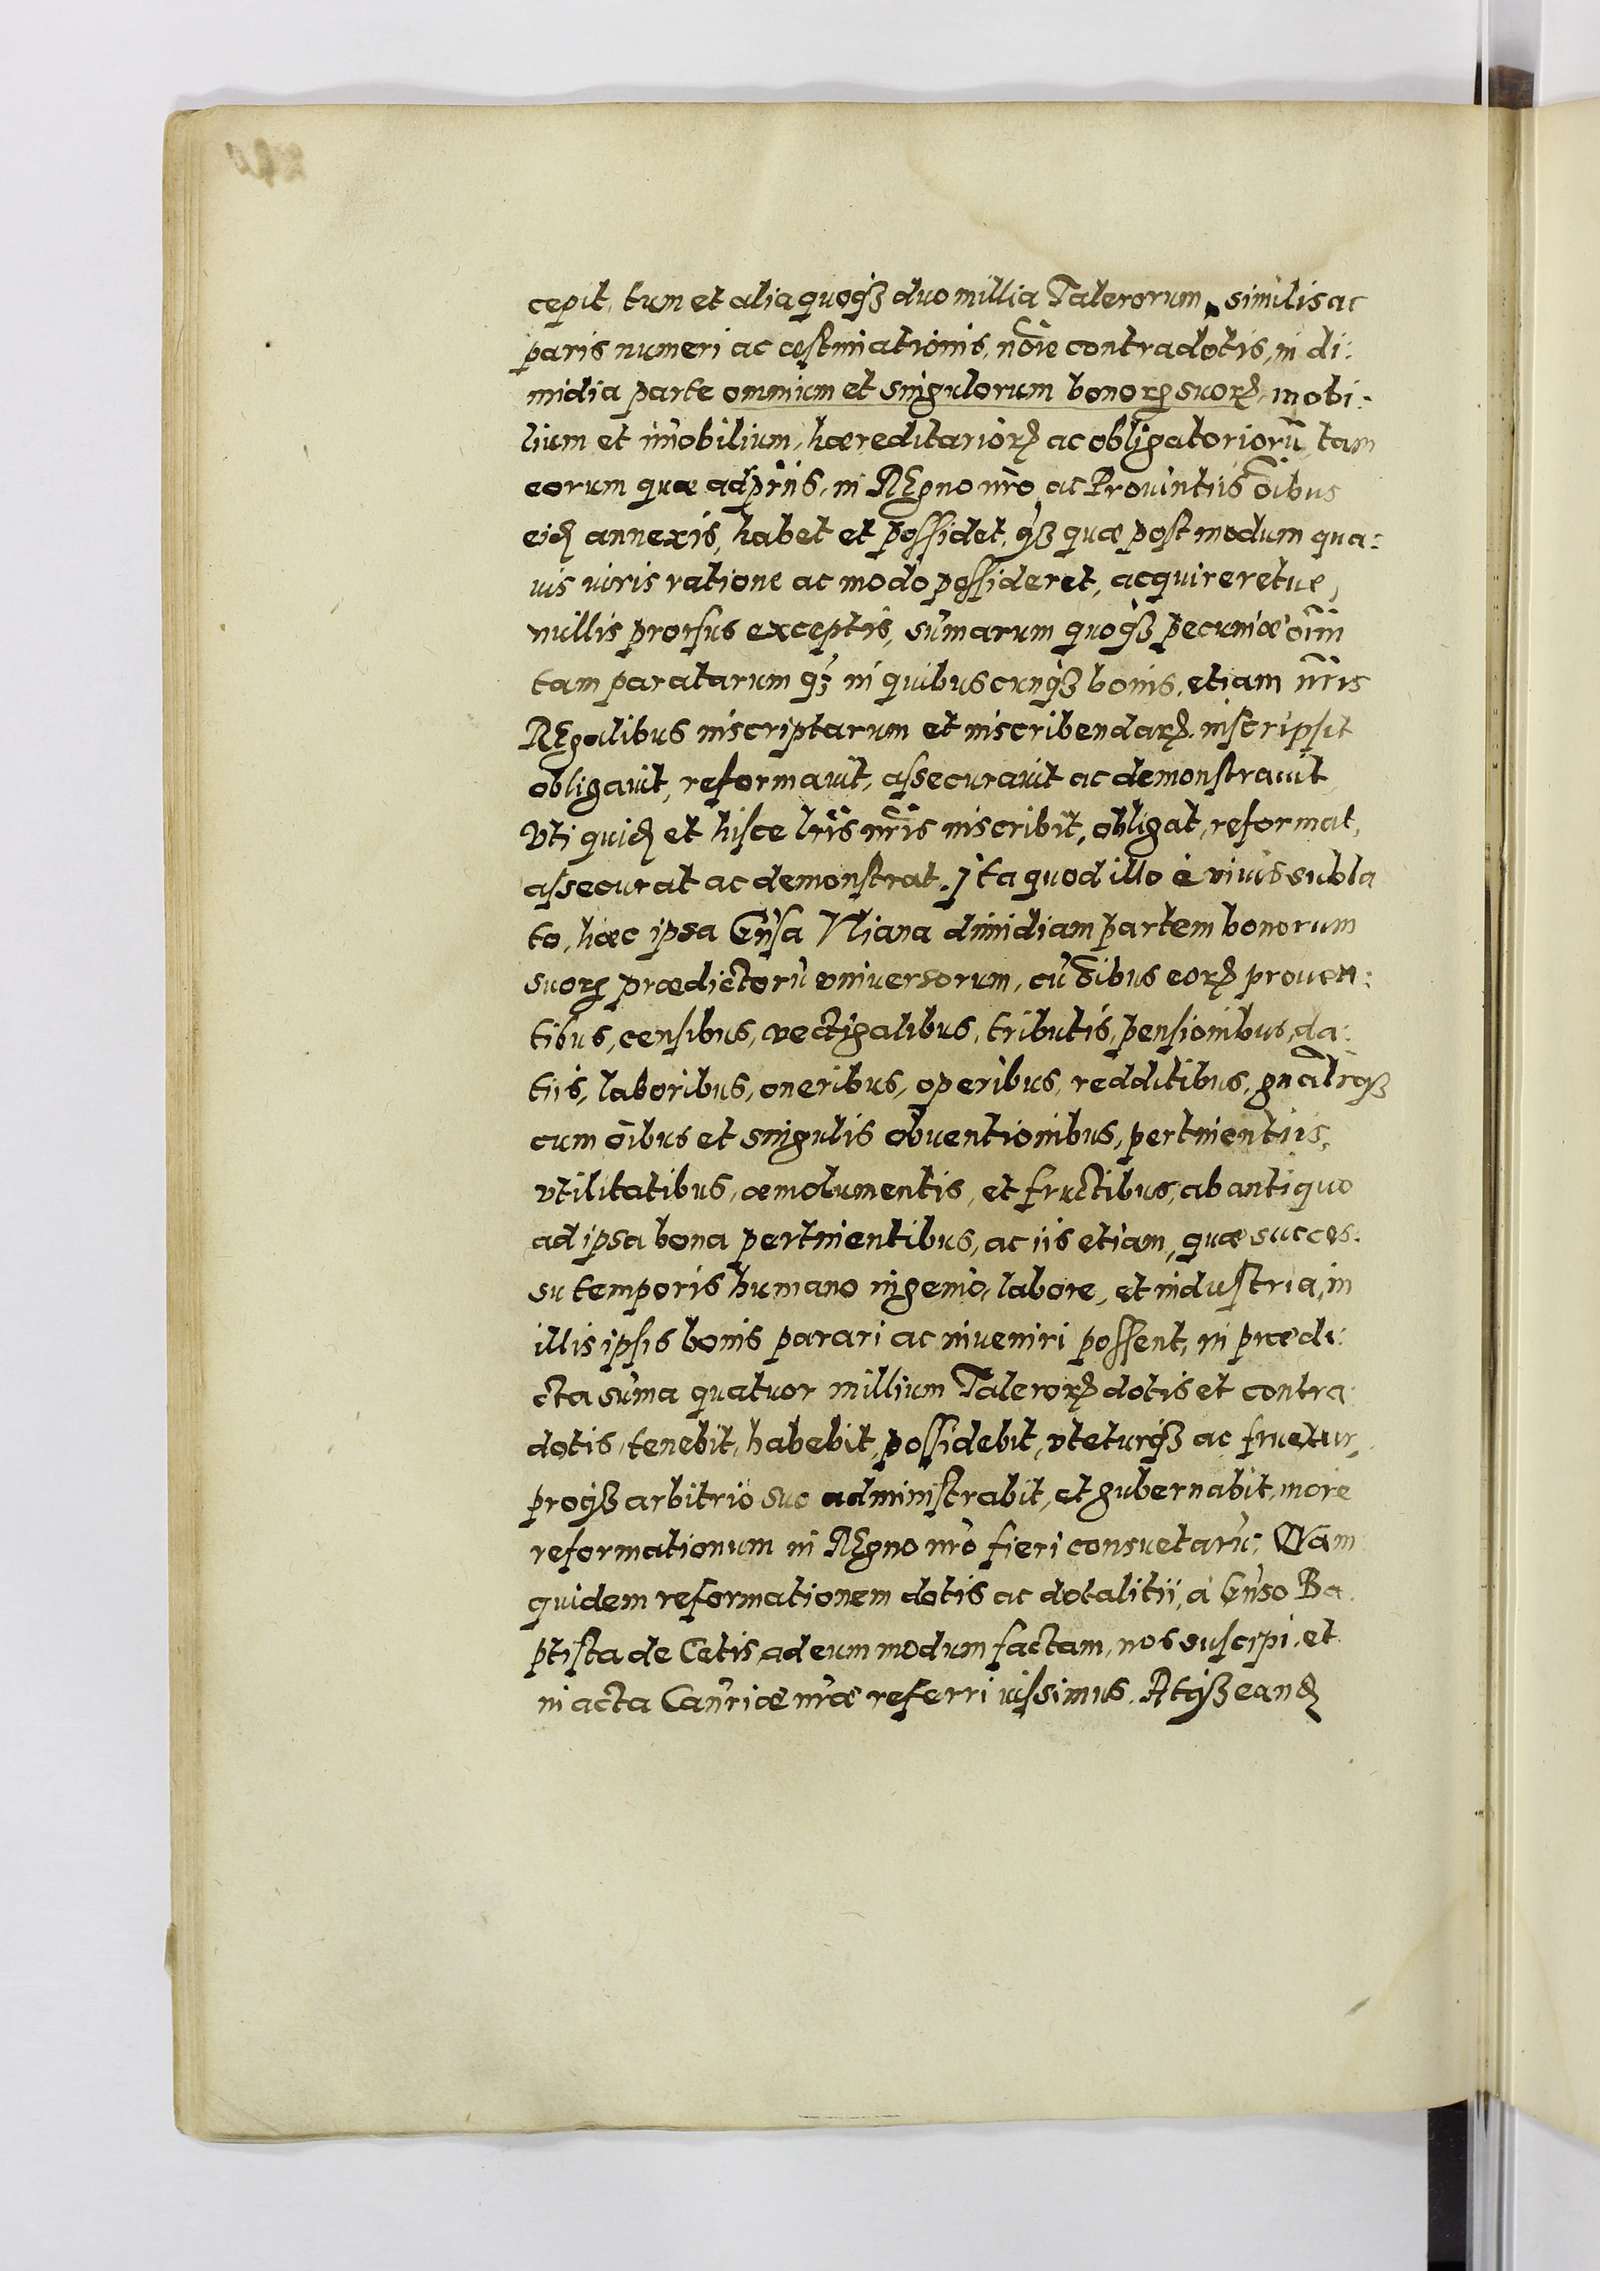 cepit, tum et alia quoq₃ duo millia Talerorum, similis ac
paris numeri ac æstimationis, nõie contradotis, in di:
midia parte omnium et singulorum bonorꝝ suorꝝ, mobi:
lium et im̃obilium, hæreditariorꝝ ac obligatoriorũ, tam
eorum quæ ad p̃ñs, in REgno nr̃o ac Prouintiis õibus
eid annexis, habet et possidet, q₃ quæ postmodum qua:
uis iuris ratione ac modo possideret, acquireretue,
nullis prorsus exceptis, sum̃arum quoq₃ pecuniæ oĩm
tam paratarum q₃ in quibuscunq₃ bonis, etiam nr̃is
REgalibus inscriptarum et inscribendarꝝ, inscripsit
obligauit, reformauit, assecurauit ac demonstrauit,
Vti quid et hisce lr̃is nr̃is inscribit, obligat, reformat,
assecurat ac demonstrat. Ita quod illo è viuis subla
to, hæc ipsa Gñsa Vliana dimidiam partem bonorum
suorꝝ prædictorũ vniuersorum, cũ õibus eorꝝ prouen:
tibus, censibus, vectigalibus, tributis, pensionibus, da:
tiis, laboribus, oneribus, operibus, redditibus, gñalr̃q₃
cum õibus et singulis obuentionibus, pertinentiis,
vtilitatibus, æmolumentis, et fructibus, ab antiquo
ad ipsa bona pertinentibus, ac iis etiam, quæ succes:
su temporis humano ingenio, labore, et industria, in
illis ipsis bonis parari ac inueniri possent, in prædi:
cta sum̃a quatuor millium Talerorꝝ dotis et contra
dotis, tenebit, habebit, possidebit, vteturq₃ ac fruetur,
proq₃ arbitrio suo administrabit, et gubernabit, more
reformationum in REgno nr̃o fieri consuetarũ: Quam
quidem reformationem dotis ac dotalitii, à Gñso Ba
ptista de Cetis ad eum modum factam, nos suscipi, et
in acta Canr̃iæ nr̃æ referri iussimus. Atq₃ eand